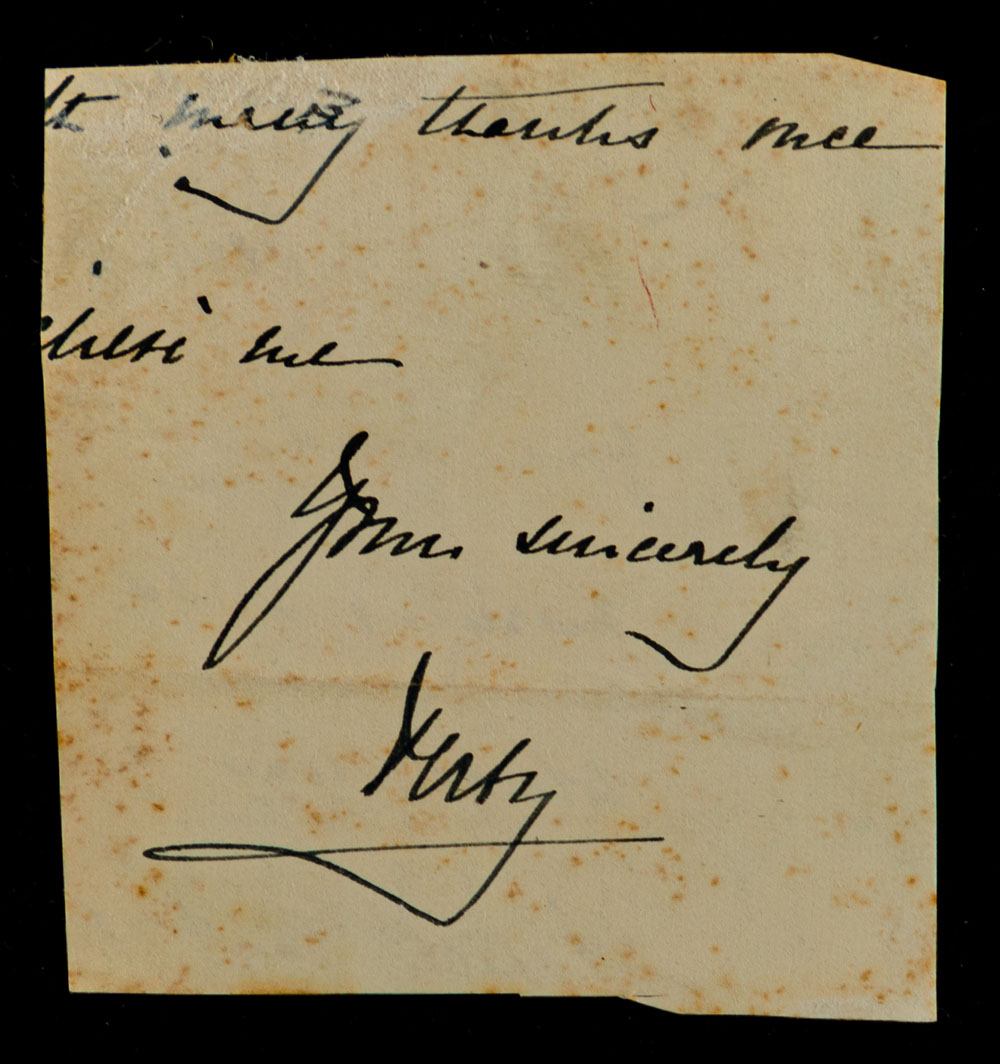 th many thanks once
elieve me
Yours sincerely
Derby